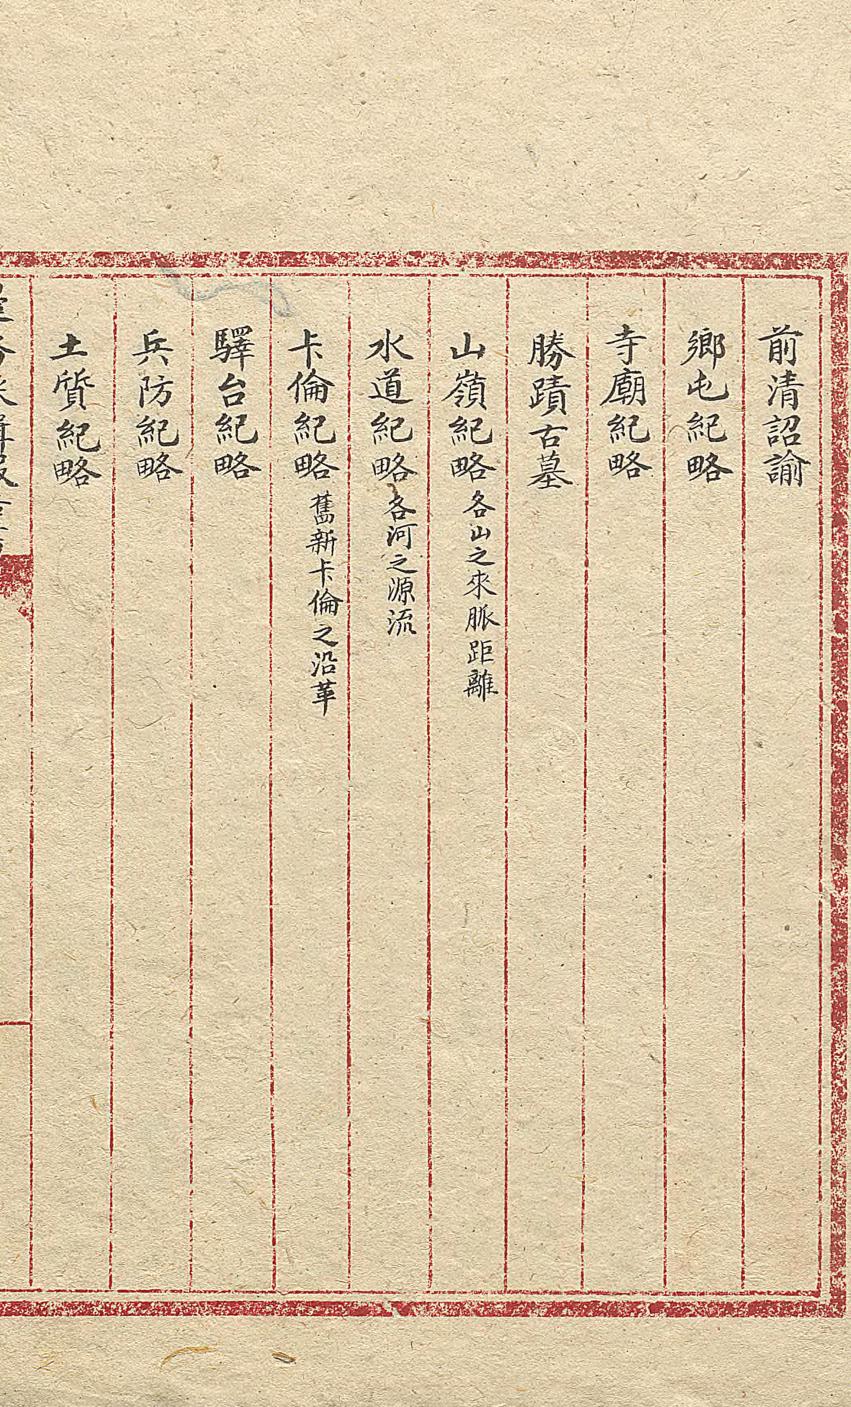 前清詔諭
鄉屯紀略
寺廟紀略
勝蹟古墓
山嶺紀略 各山之來脈距離
水道紀略 各河之源流
卡倫紀略 舊新卡倫之沿革
驛台紀略
兵防紀略
土質紀略